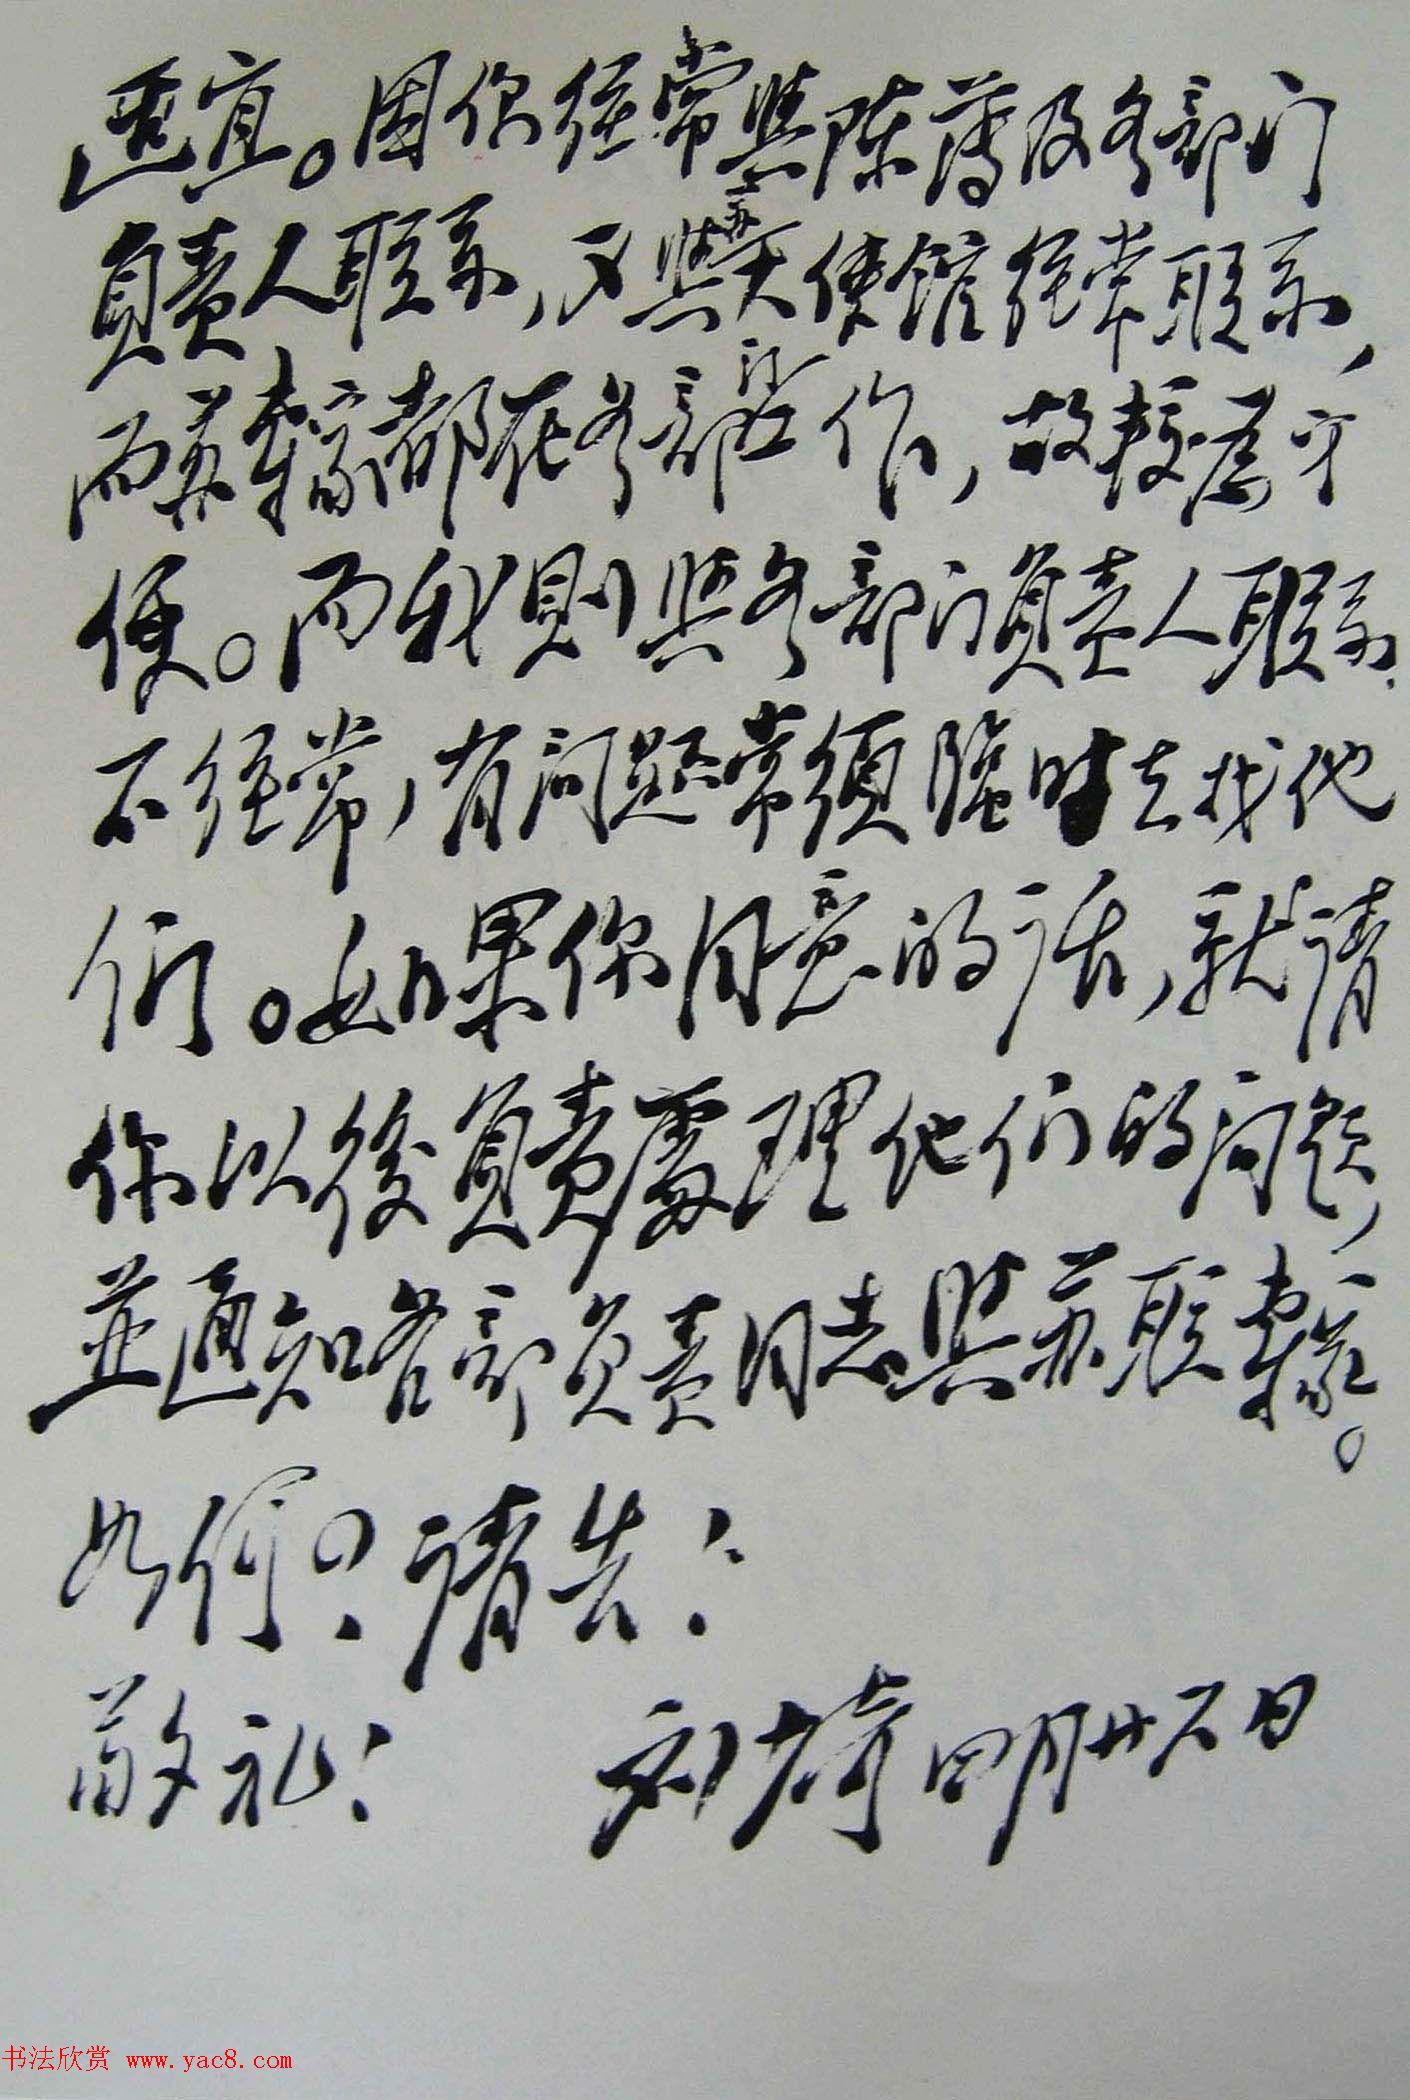 适宜。因你经常與陈薄及各部门
負責人联系，又與苏大使馆经常联系，
而苏專家都在各部门工作，故較为方
便。而我則與各部门負責人联系
不经常，有问题常須臨时去找他
们。如果你同意的话，就请
你以後負責處理他们的问题，
並通知各部负责同志與苏联專家。
如何？请告！
敬礼！ 刘少奇 四月廿六日
书法欣赏 www.yac8.com